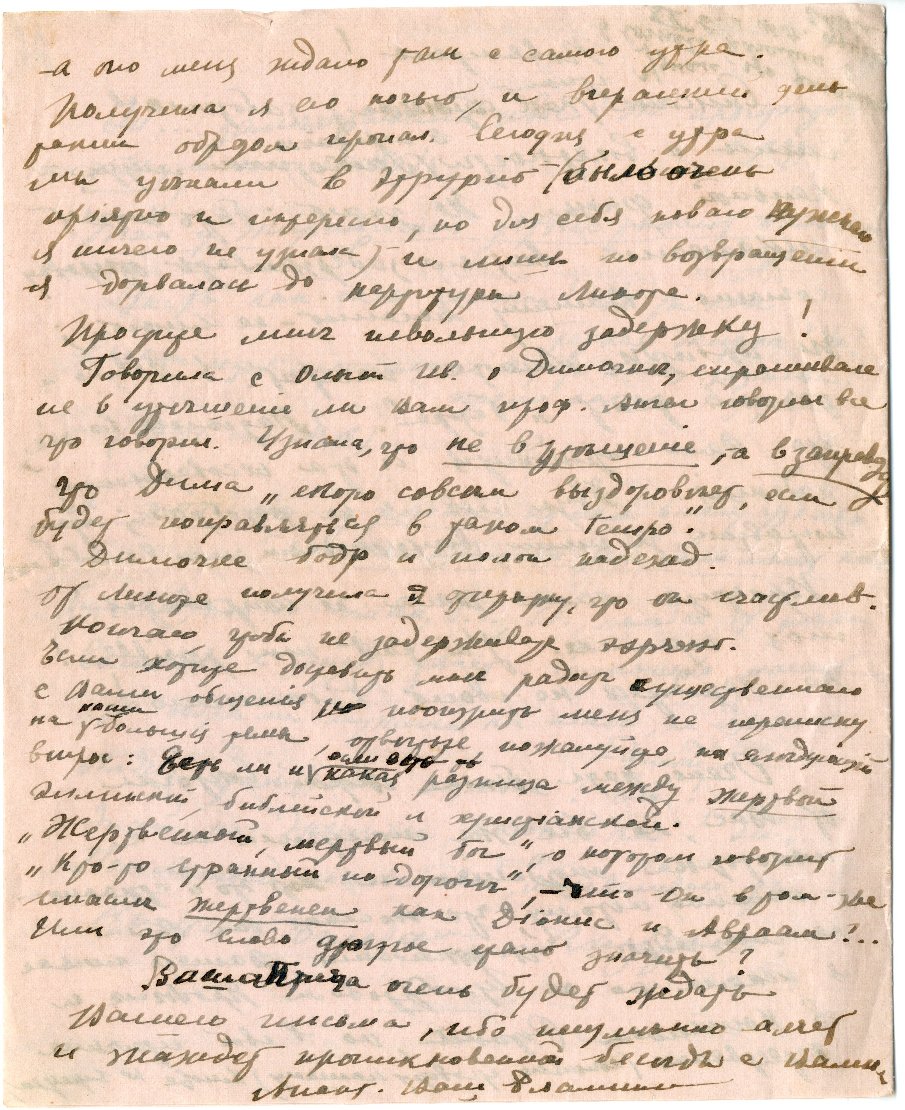 -а оно меня ждало там с самого утра.
Получила я его ночью, и вчерашний день
таким образом пропал. Сегодня с утра
мы уехали в Этрурию – (было очень
пріятно и интересно, но для себя новаго нужнаго
я ничего не узнала) – и лишь по возвращеніи
я дорвалась до
Простите мнѣ невольную задержку!
Говорила с Ольгой Ив. о Димочкѣ, спрашивала
не в утѣшеніе ли Вам проф. говорил все
что говорил. Узнала, что не в утѣшеніе, а взаправду
что Дима „скоро совсем выздоровѣет, если
будет поправляться в таком темпо".
Димочка бодр и полон надежд.
От получила я что он счастлив.
Кончаю, чтобы не задерживать
Если хотите доставить мнѣ радость существеннаго
с Вами общенія поощрить меня на переписку
на наши большія темы, отвѣтьте пожалуйста, на слѣдующій
вопрос: Есть ли и если есть то какая разница между жертвой
эллинской, библейской и христіанской.
„Жертвенный, мертвый бог", о котором говорит
„Кто-то странный по дорогѣ", – что – Он в том-же
смыслѣ жертвенен как Діонис и Авраам?!..
Или это слово другое стало значить?
Ваша Птица очень будет ждать
Вашего письма, ибо неумѣнно алчет
и жаждет проникновенной бесѣды с Вами.
Ваш Фламинго